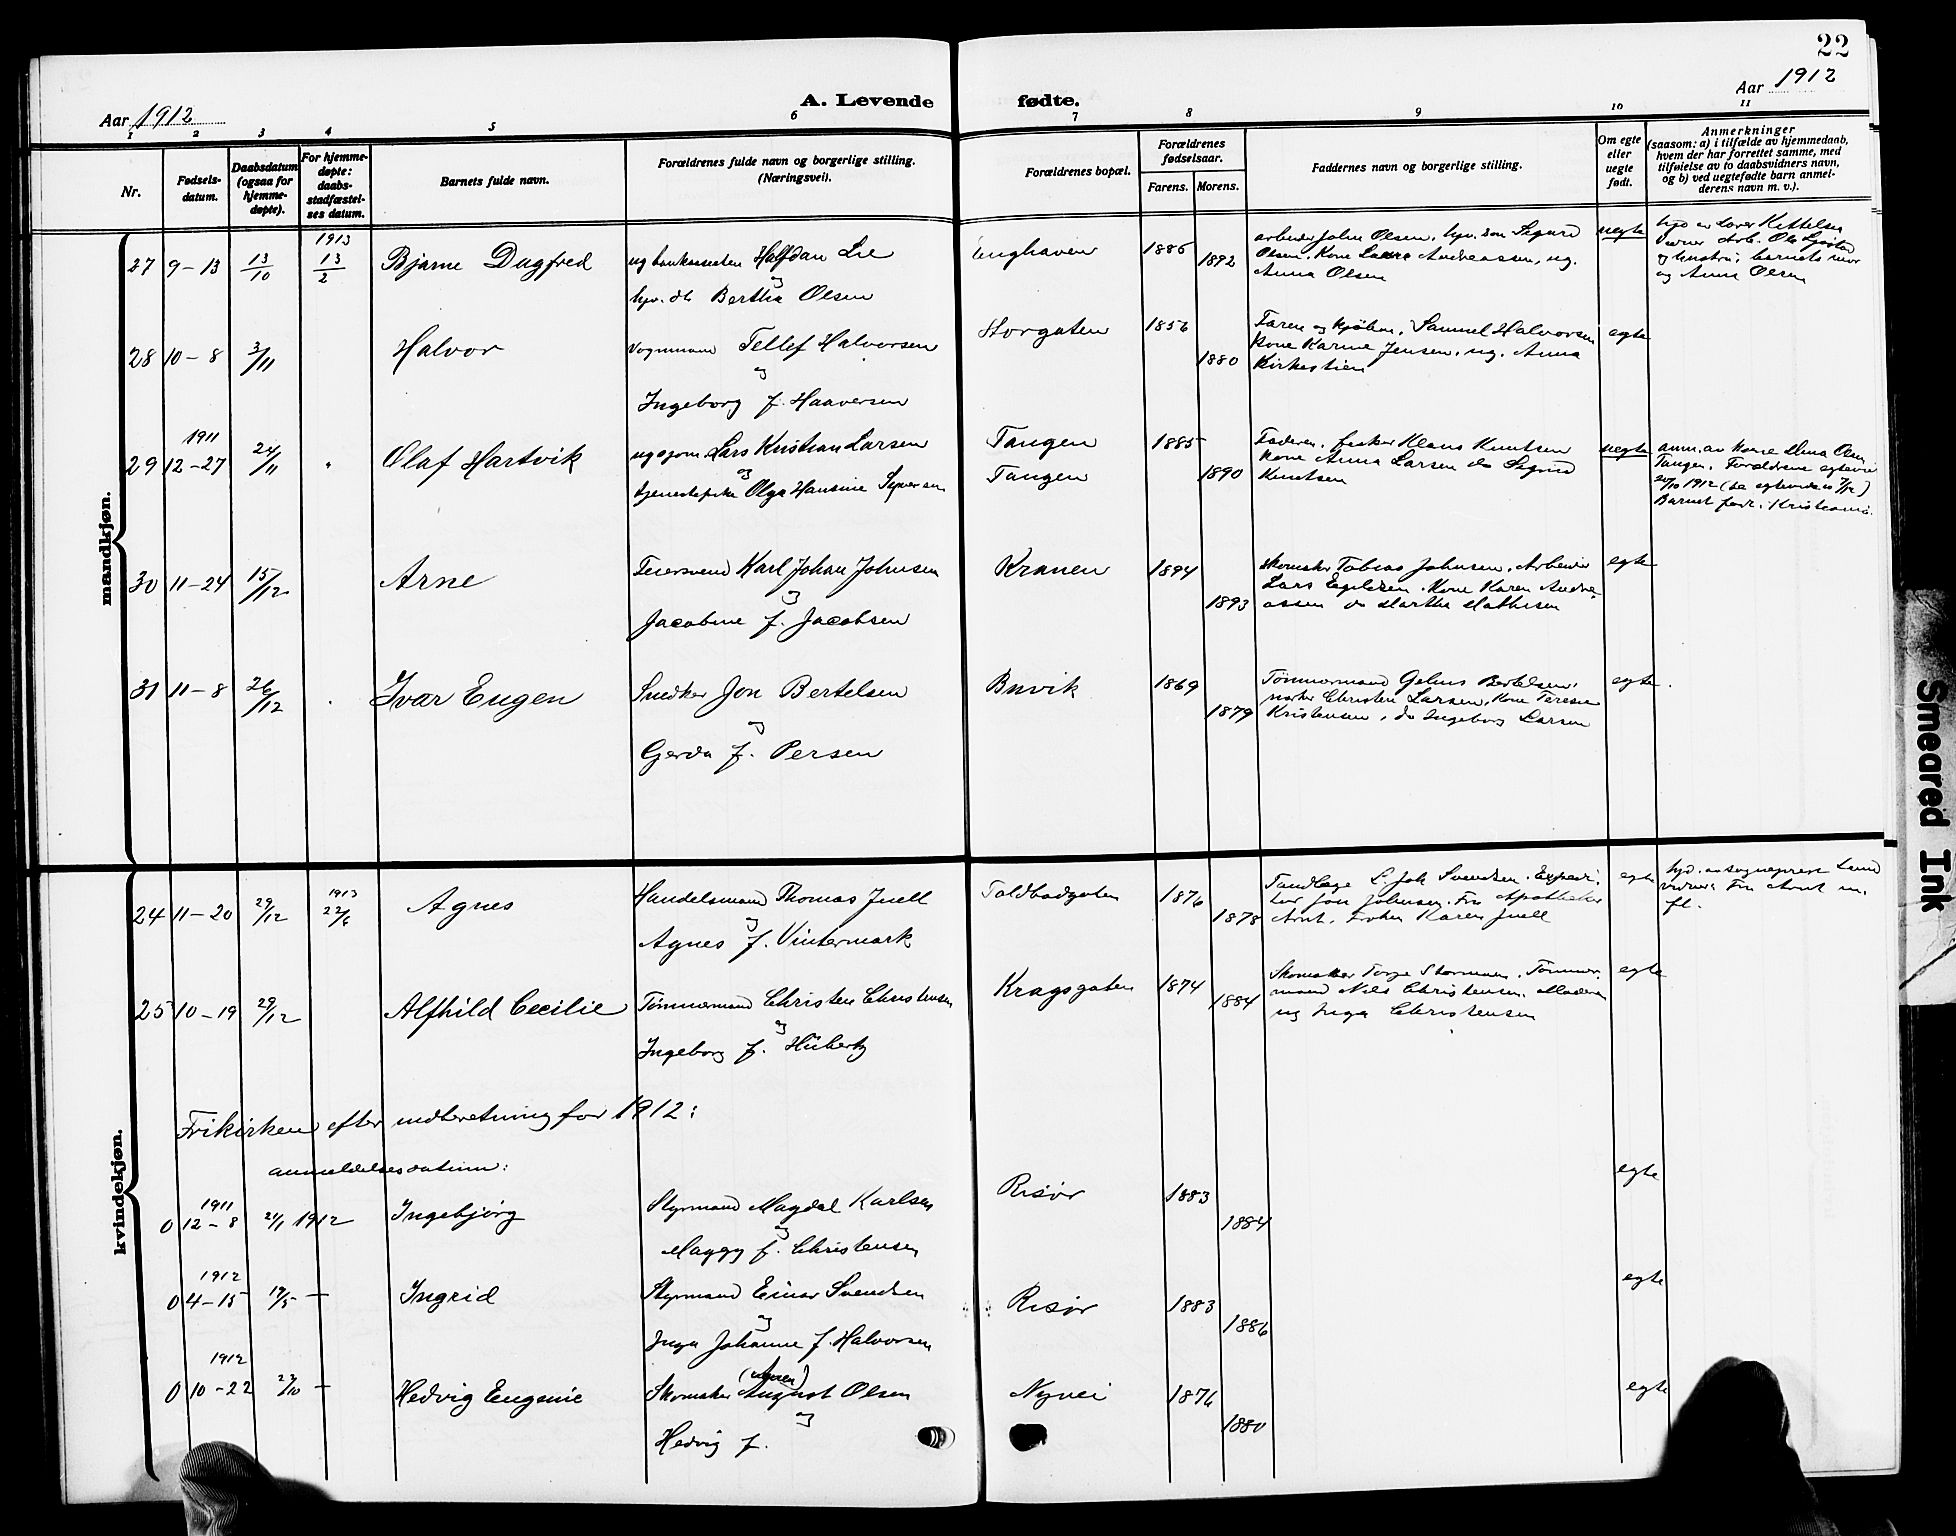 22
Aar 1912
A. Levende fødte.
Aar 1912
1 2 3 4 5 6 7 8 9 10 11
Nr.
Fødsels-
datum.
Daabsdatum
(ogsaa for
hjemme-
døpte).
For hjemme-
døpte:
daabs-
stadfæstel-
ses datum.
Barnets fulde navn.
Forældrenes fulde navn og borgerlige stilling.
(Næringsvei).
Forældrenes bopæl.
Forældrenes
fødselsaar.
Farens. Morens.
Faddernes navn og borgerlige stilling.
Om egte
eller
uegte
født.
Anmerkninger
(saasom: a) i tilfælde av hjemmedaab,
hvem der har forrettet samme, med
tilføielse av to daabsvidners navn,
og b) ved uegtefødte barn anmel-
derens navn m. v.).
mandkjøn.
27 9-13 13/10 1913 13/2 Bjarne Dagfred
Halfdan Lie
og
Bertha Olsen
Enghaven 1886 1892
arbeider John Olsen, Sigurd
Olsen, Kone Laura Andreassen, ug.
Anna Olsen
uegte
og Anna Olsen
28 10-8 3/11 Halvor
Vognmand Tellef Halvorsen
og
Ingeborg f. Haaversen
Storgaten 1856 1880
Samuel Halvorsen
Kone Karine Jensen, ug. Anna
Kirkestien
egte
29 1911 12-27 24/11 Olaf Hartvik
Lars Kristian Larsen
og
Olga Hansine Syversen
Tangen
Tangen
1885 1890
Faderen, fisker Klaus Knutsen
Kone Anna Larsen do Sigrid
Knutsen
uegte
Barnet født i Kristiania.
30 11-24 15/12 Arne
Feiersvend Karl Johan Johnsen
og
Jacobine f. Jacobsen
Kranen 1894 1893
Skomaker Tobias Johnsen, Arbeider
Lars Egeldsen, Kone Karen Andre-
assen do Martha Mathisen
egte
31 11-8 26/12 Ivar Eugen
Snedker Jon Bertelsen
og
Gerda f. Persen
Buvik 1869 1879
Tømmermand Gelius Bertelsen,
Christen Larsen, Kone Terese
Kristensen, do Ingeborg Larsen
egte
kvindekjøn.
24 11-20 29/12 1913 22/6 Agnes
Handelsmand Thomas Juell
og
Agnes f. Vintermark
Toldbodgaten 1876 1878
Tandlæge L. Joh Svendsen. Expedi-
tør Jon Johnsen. Fru Apotheker
Arnt. Frøken Karen Juell
egte
25 10-19 29/12 Alfhild Cecilie
Tømmermand Christen Christensen
og
Ingeborg f. Hübertz
Kragsgaten 1874 1884
Skomaker Torje Stormoen. Tømmer-
mand Nils Christensen. Moderen
ug Inga Christensen
egte
Frikirken efter indberetning for 1912:
anmeldelsesdatum:
0 1911 12-8 21/1 1912 Ingebjørg
Styrmand Magdal Karlsen
og
Maggy f. Christensen
Risør 1883 1884
egte
0 1912 4-15 19/5 — Ingrid
Styrmand Einar Svendsen
og
Inga Johanne f. Halvorsen
Risør 1883 1886
egte
0 1912 10-22 27/10 — Hedvig Eugenie
Skomaker August Olsen
og
Hedvig f.
Nyvei 1876 1880
egte
Smeared Ink